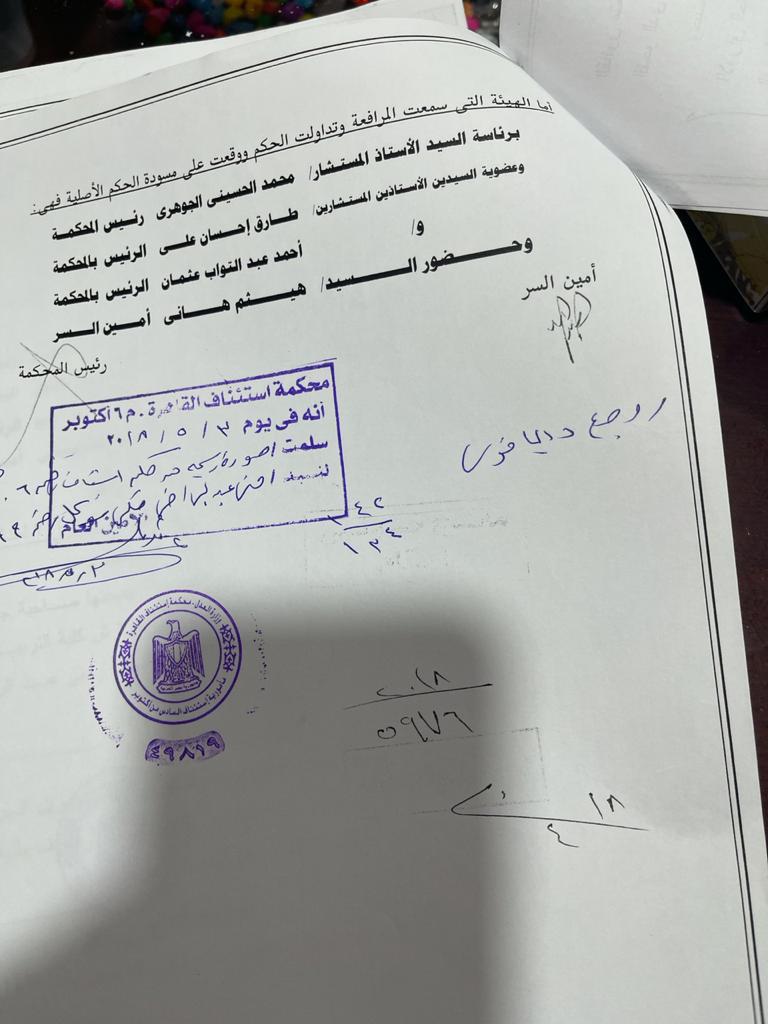 أما الهيئة التى سمعت المرافعة وتداولت الحكم ووقعت على مسودة الحكم الأصلية فهى:
برئاسة السيد الأستاذ المستشار/ محمد الحسينى الجوهرى رئيس المحكمة
وعضوية السيدين الأستاذين المستشارين/ طارق إحسان على الرئيس بالمحكمة
و/ أحمد عبد التواب عثمان الرئيس بالمحكمة
وحضور السيد/ هيثم هانى أمين السر
أمين السر
رئيس المحكمة
محكمة استئناف القاهرة . م ٦ أكتوبر
أنه فى يوم ٣ / ٥ / ٢٠١٨
سلمت صورة
لنسيد
العام
روجع
١٤٢
١٣٤
وزارة العدل - محكمة إستئناف القاهرة
مأمورية إستئناف السادس من أكتوبر
٤٩٨١٩
٢٠١٨
٥٩٧٦
١٨
٤